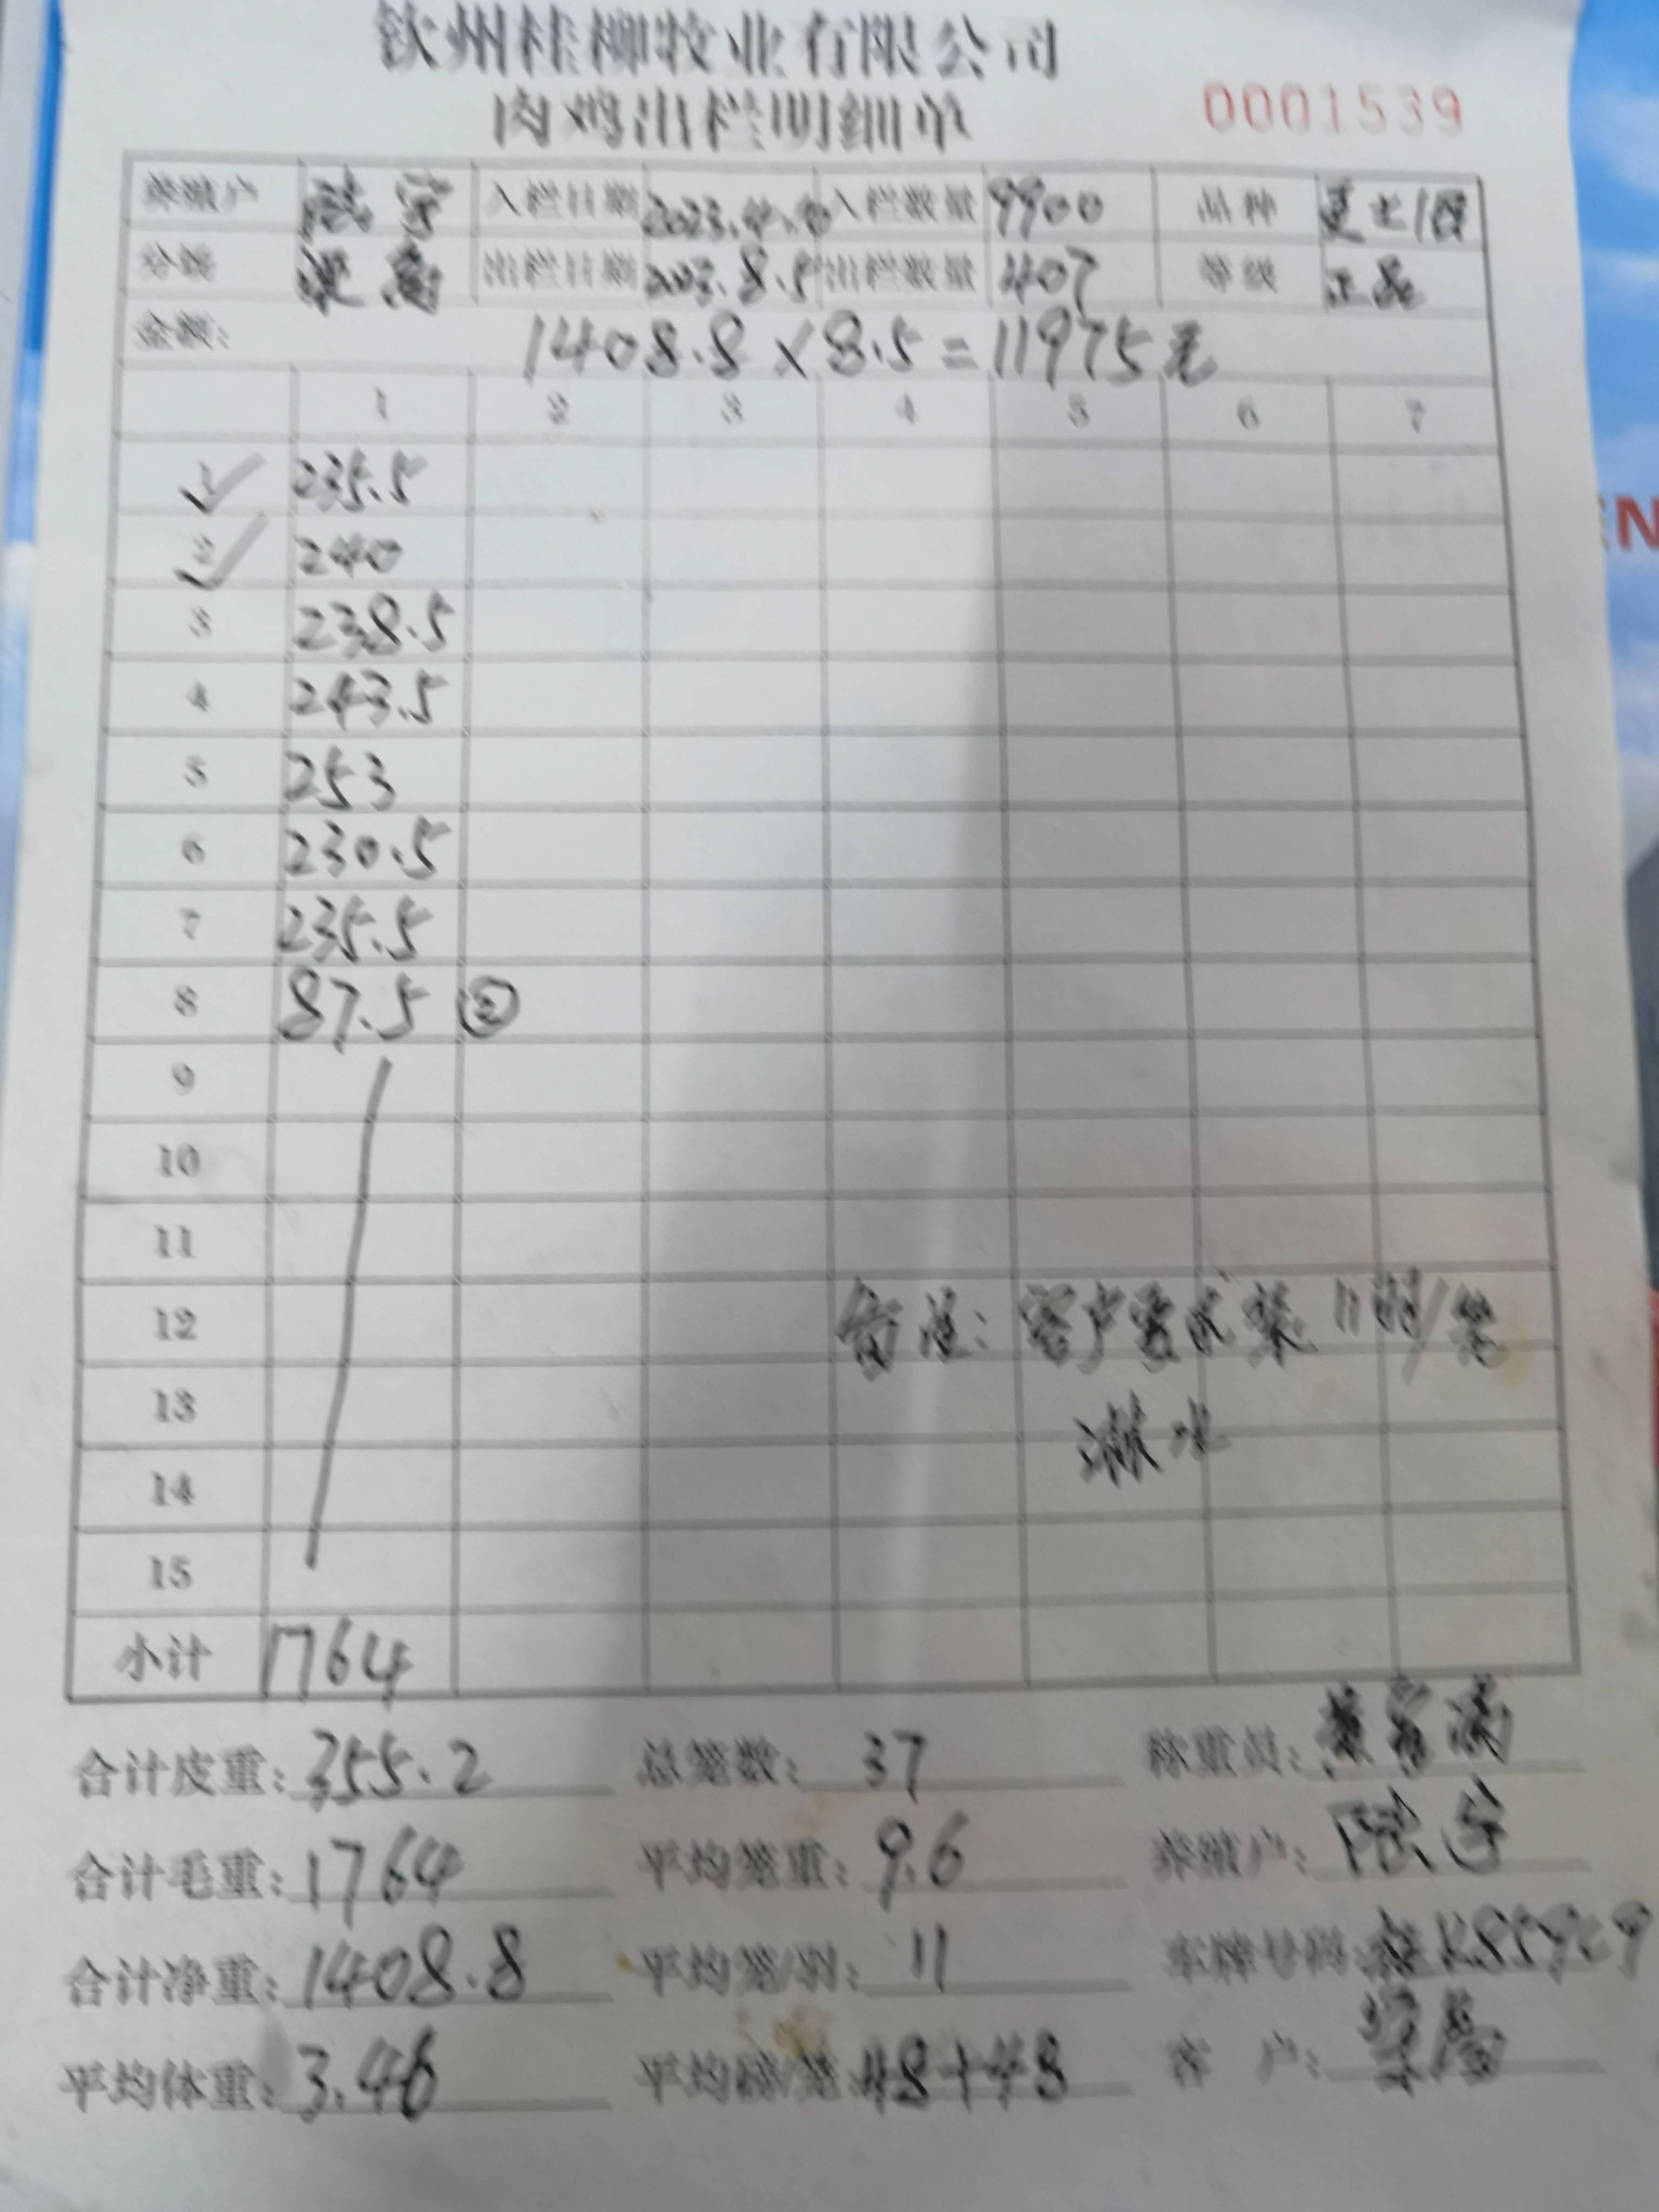 钦州桂柳牧业有限公司
肉鸡出栏明细单 0001539
养殖户 入栏日期 2023.4. 入栏数量 9900 品种
分场 出栏日期 2023.8.5 出栏数量 407 等级 正品
金额: 1408.8×8.5=11975元
1 2 3 4 5 6 7
1 235.5
2 240
3 238.5
4 243.5
5 253
6 230.5
7 235.5
8 87.5 ②
9
10
11
12 备注: 客户要求装 11羽/笼
13 淋水
14
15
小计 1764
合计皮重: 355.2 总笼数: 37 称重员:
合计毛重: 1764 平均笼重: 9.6 养殖户:
合计净重: 1408.8 平均笼/羽: 11 车牌号码:
平均体重: 3.46 平均磅/笼: 客 户:
EN